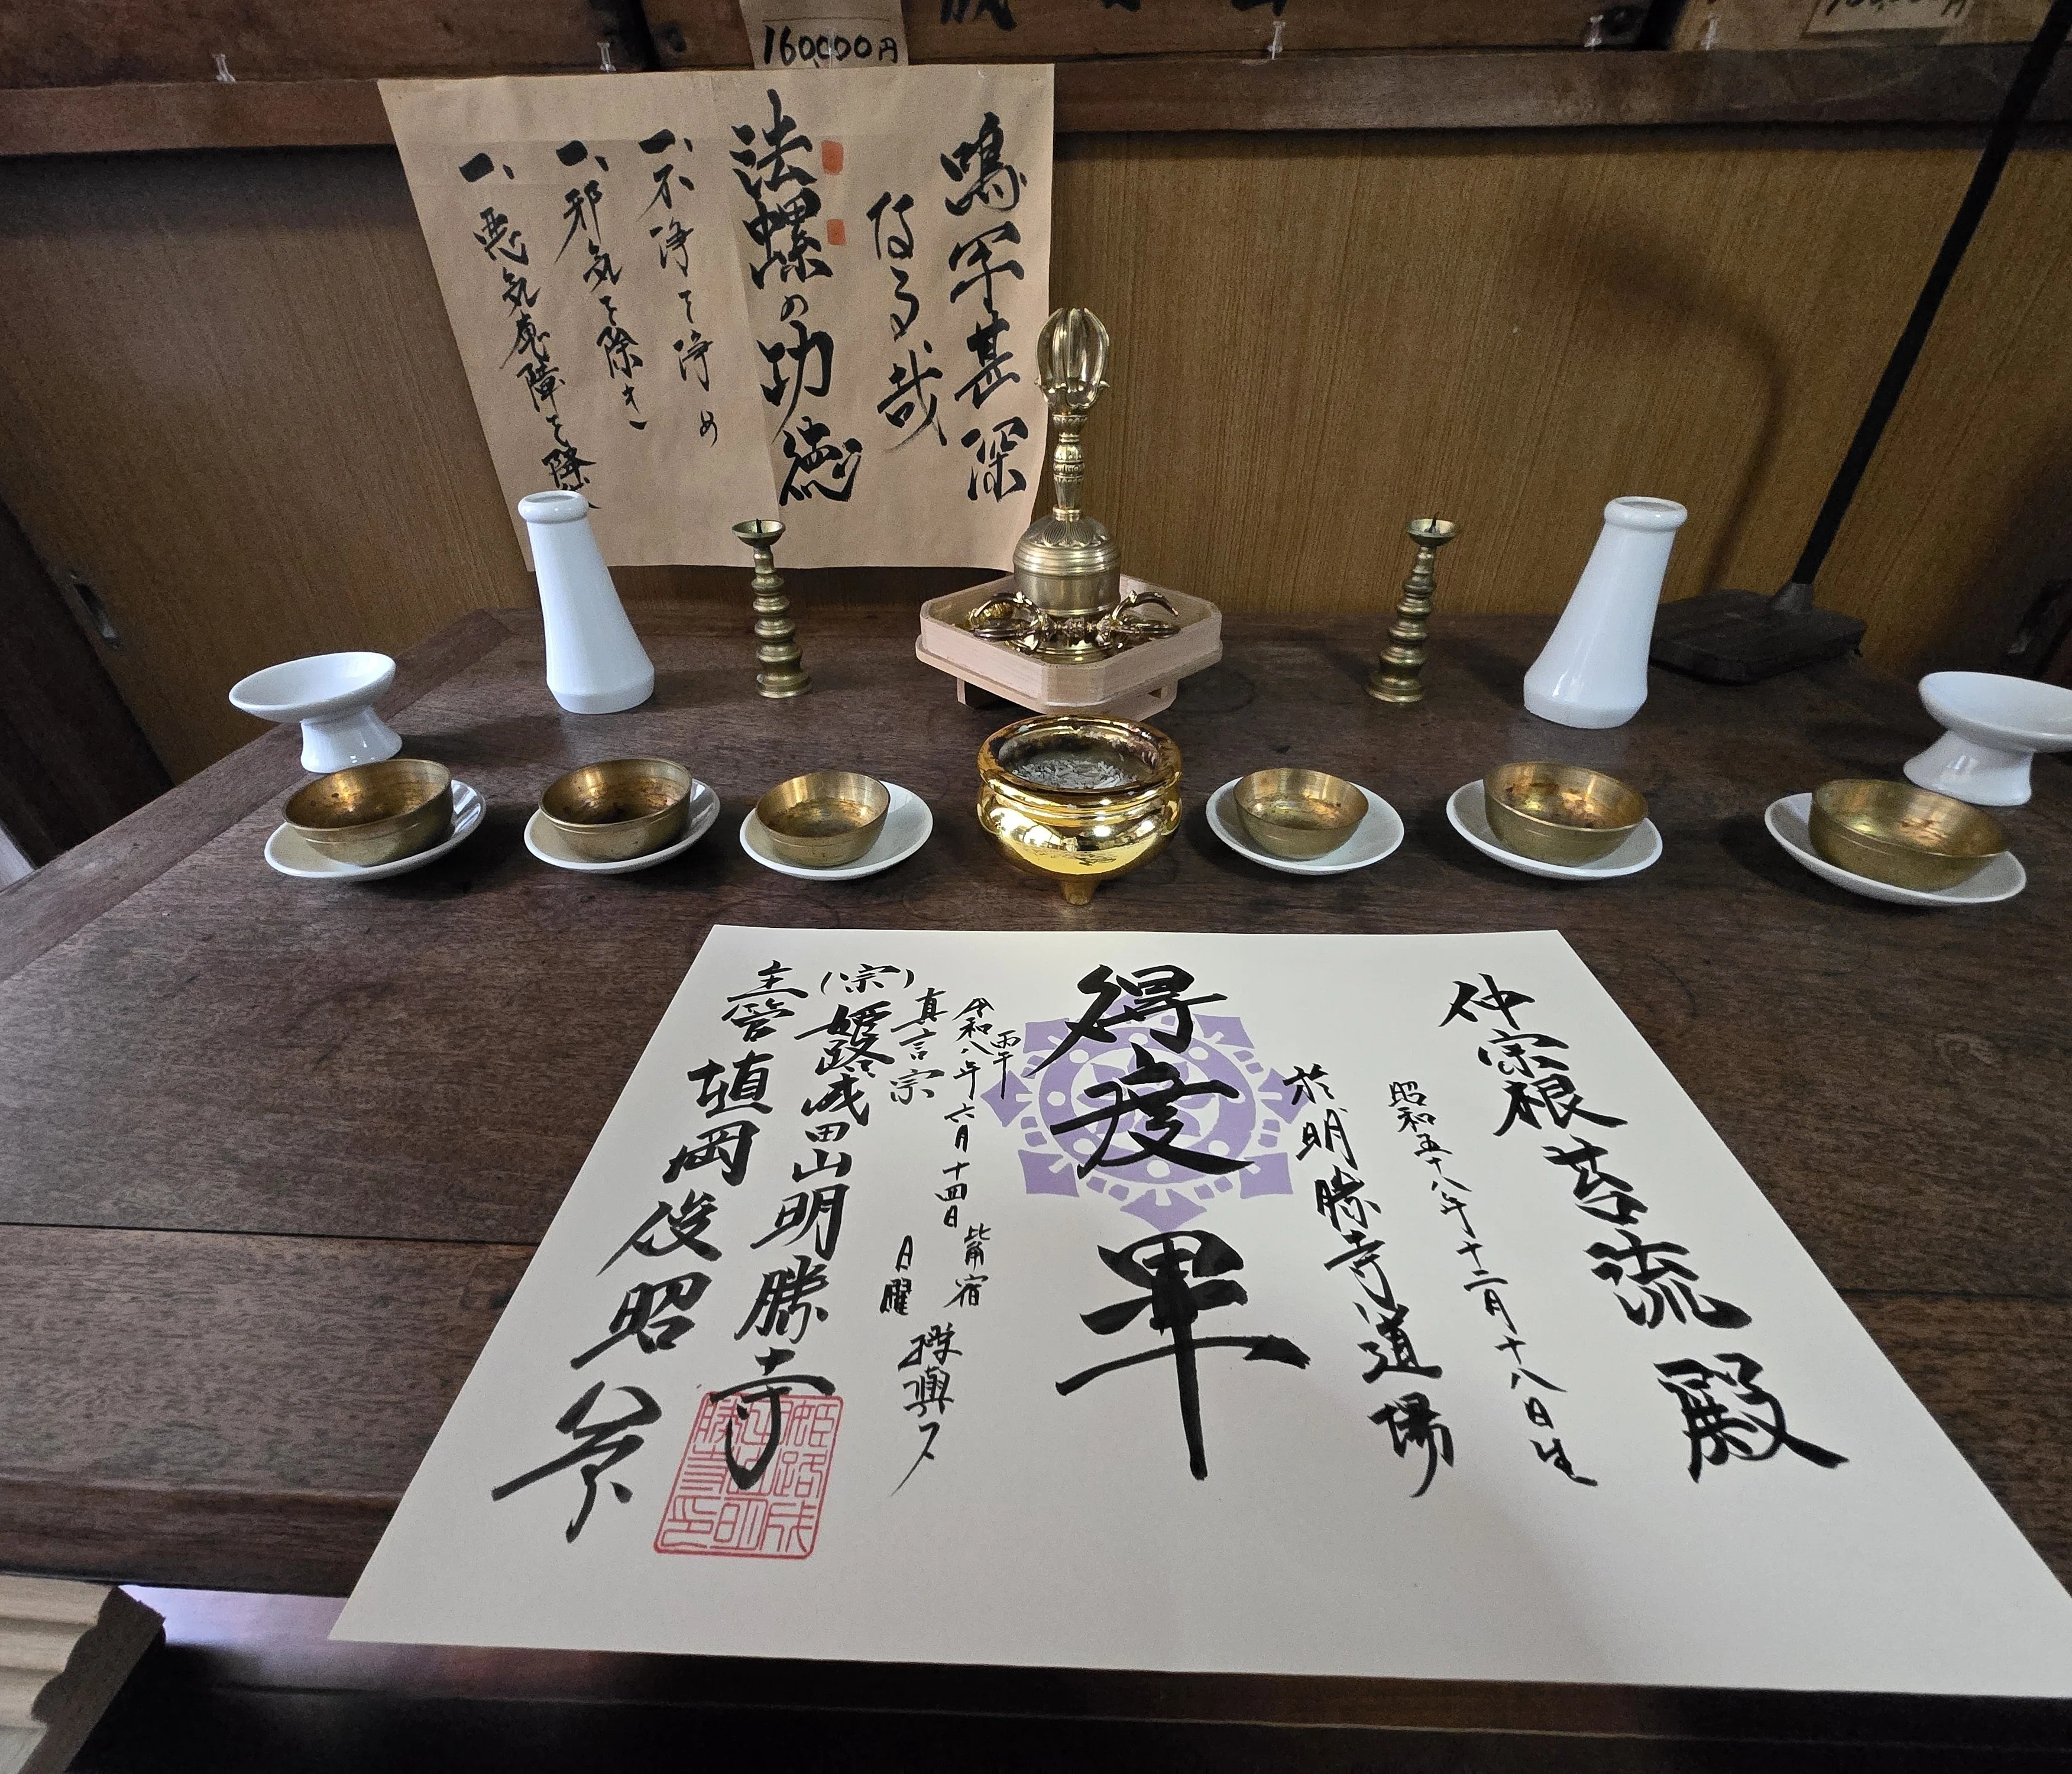 160000円
鳴呼甚深
なる哉
法螺の功徳
一、不浄を浄め
一、邪気を除き
一、悪気魔障を降伏
仲宗根苔流殿
昭和五十八年十二月十八日生
於明勝寺道場
得度畢
丙午
令和八年六月十四日 觜宿 日曜 授與ス
真言宗
(宗)姫路成田山明勝寺
主管 埴岡俊昭